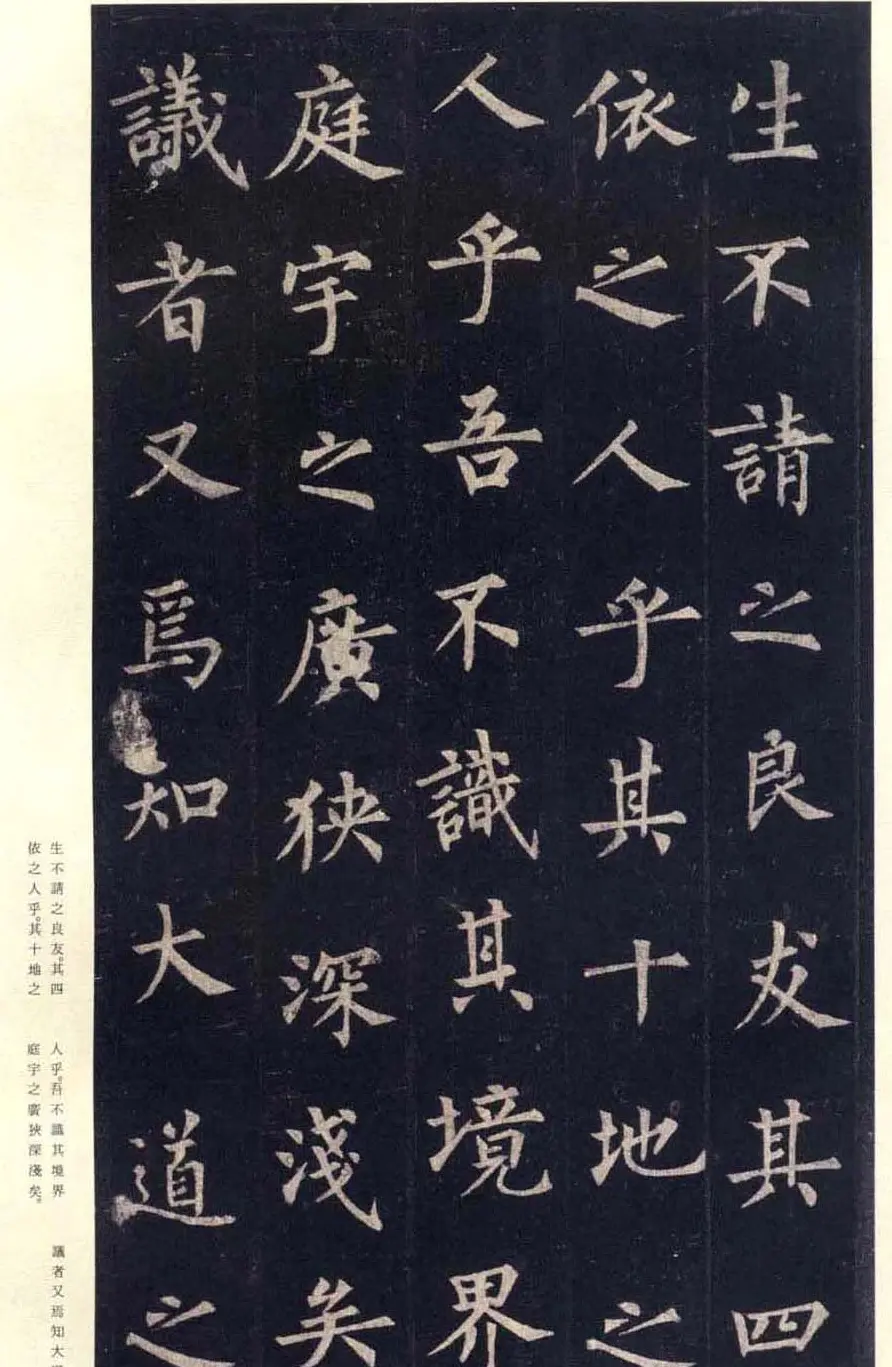 生不請之良友其四
依之人乎其十地之
人乎吾不識其境界
庭宇之廣狹深淺矣
議者又焉知大道之
生不請之良友。其四
依之人乎。其十地之
人乎。吾不識其境界
庭宇之廣狹深淺矣。
議者又焉知大